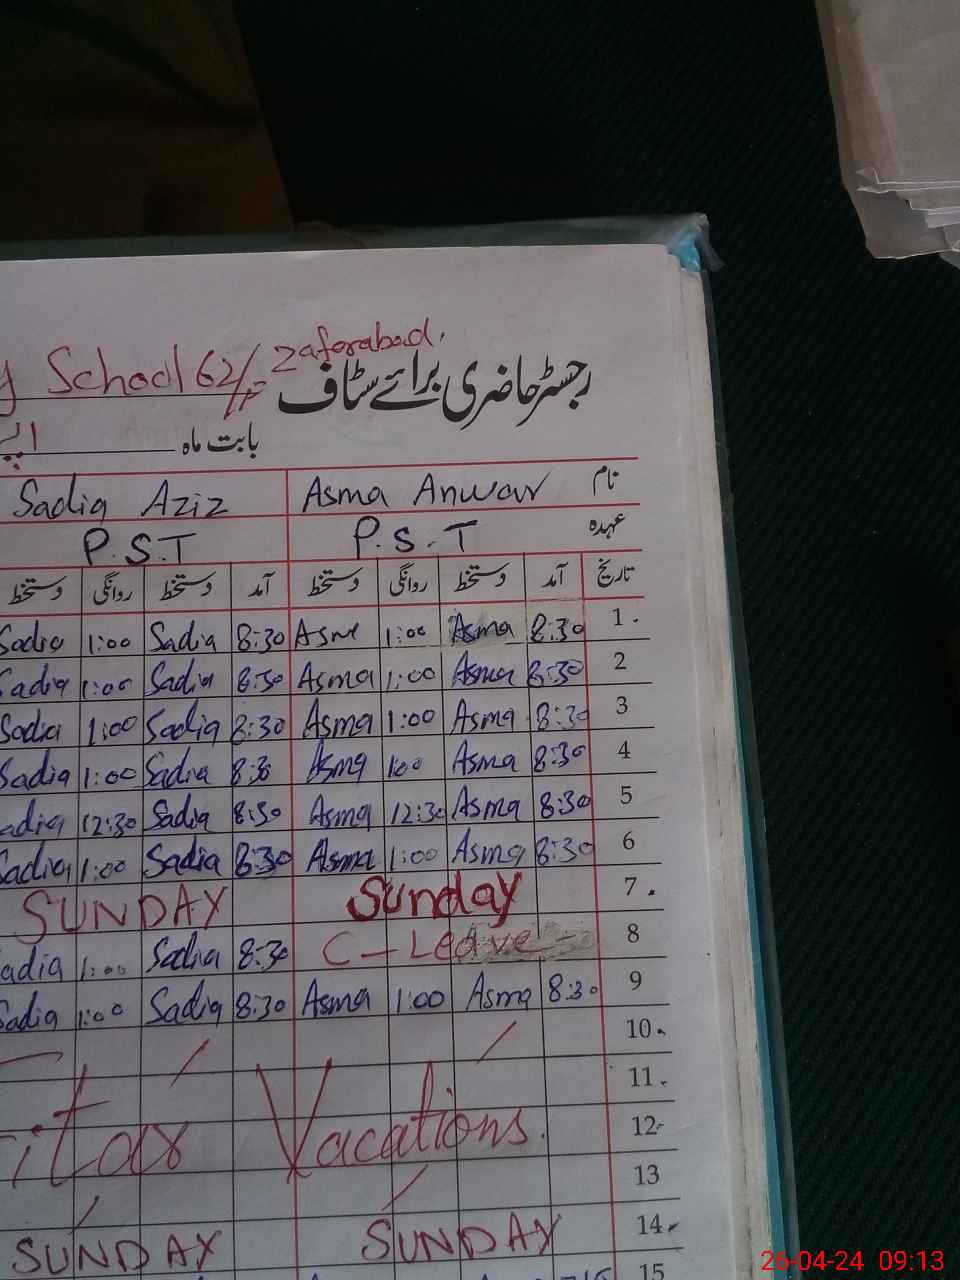 School 62/F Zafarabad.
رجسٹر حاضری برائے سٹاف
بابت ماہ
نام Asma Anwar Sadia Aziz
عہدہ P.S.T P.S.T
تاریخ آمد دستخط روانگی دستخط آمد دستخط روانگی دستخط
1. 8:30 Asma 1:00 Asma 8:30 Sadia 1:00 Sadia
2 8:30 Asma 1:00 Asma 8:30 Sadia 1:00 Sadia
3 8:30 Asma 1:00 Asma 8:30 Sadia 1:00 Sadia
4 8:30 Asma 1:00 Asma 8:30 Sadia 1:00 Sadia
5 8:30 Asma 12:30 Asma 8:30 Sadia 12:30 adia
6 8:30 Asma 1:00 Asma 8:30 Sadia 1:00 Sadia
7. Sunday SUNDAY
8 C-Leave 8:30 Sadia 1:00 adia
9 8:30 Asma 1:00 Asma 8:30 Sadia 1:00 Sadia
10.
11.
12. itar Vacations.
13
14. SUNDAY SUNDAY
15
26-04-24 09:13